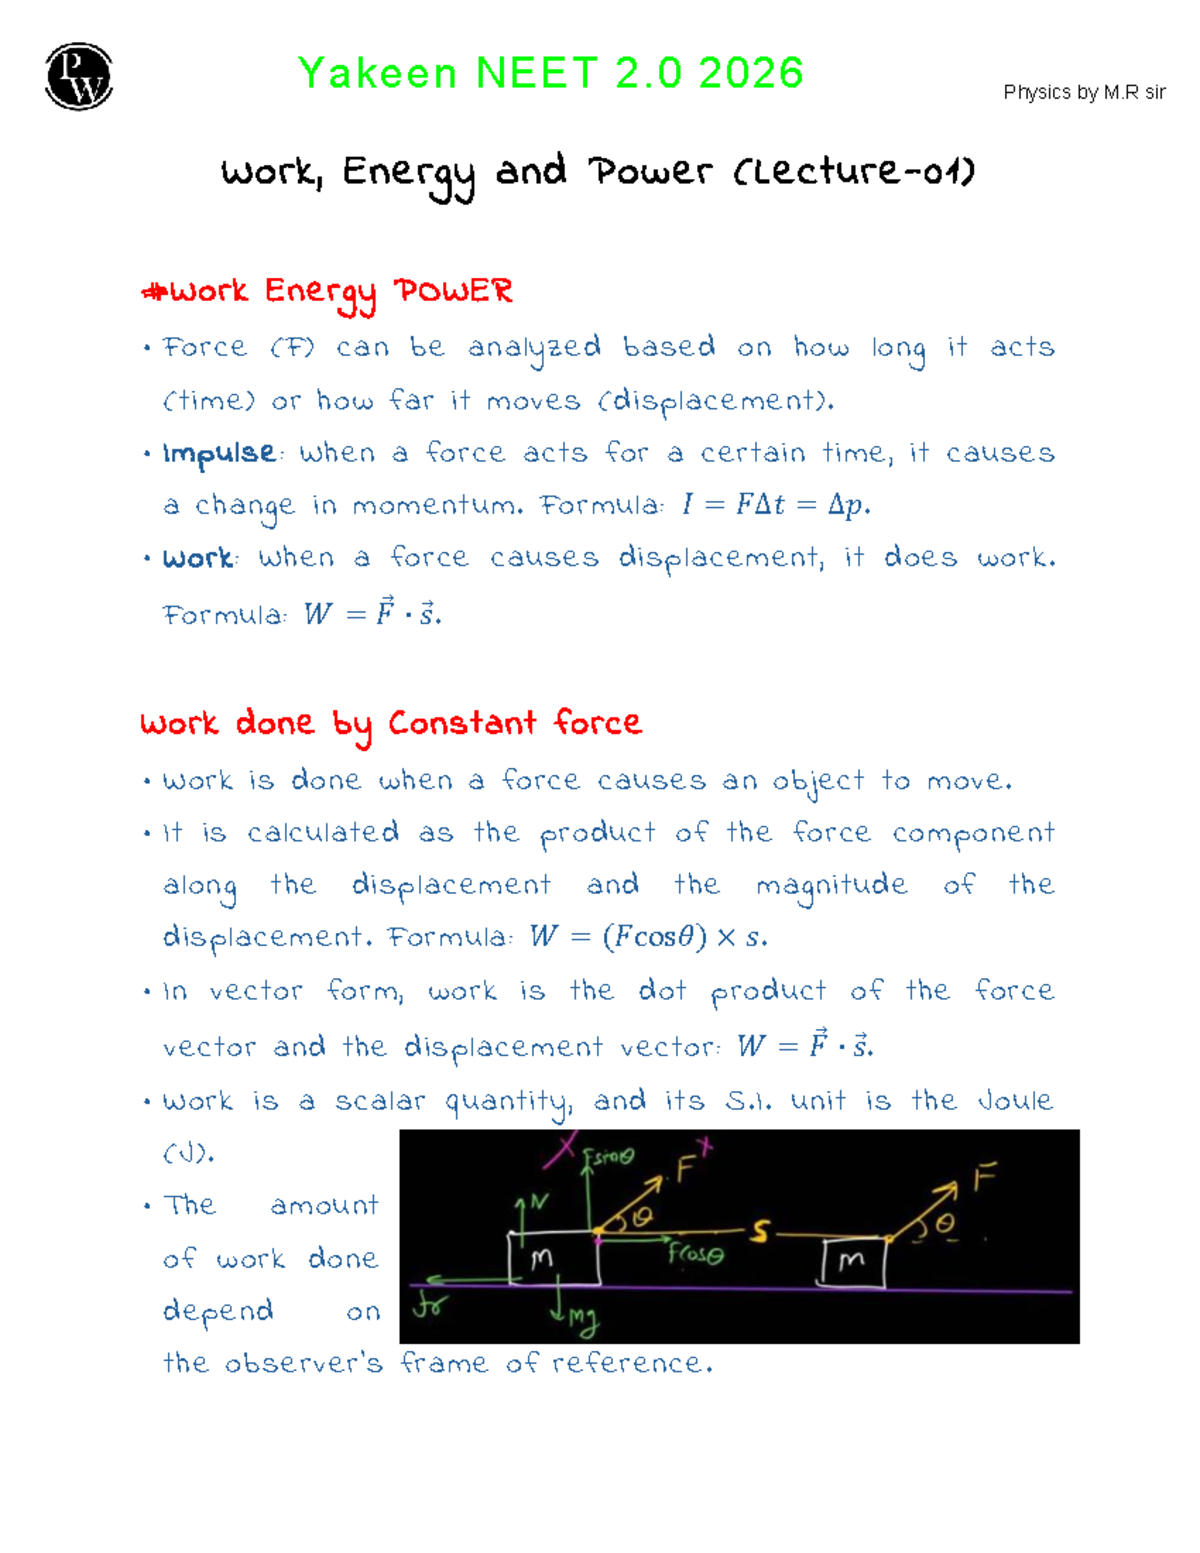 PW
Yakeen NEET 2.0 2026
Physics by M.R sir
Work, Energy and Power (Lecture-01)
#Work Energy POWER
• Force (F) can be analyzed based on how long it acts
(time) or how far it moves (displacement).
• Impulse: when a force acts for a certain time, it causes
a change in momentum. Formula: I = FΔt = Δp.
• Work: when a force causes displacement, it does work.
Formula: W = F⃗ · s⃗.
Work done by Constant force
• Work is done when a force causes an object to move.
• It is calculated as the product of the force component
along the displacement and the magnitude of the
displacement. Formula: W = (Fcosθ) × s.
• In vector form, work is the dot product of the force
vector and the displacement vector: W = F⃗ · s⃗.
• Work is a scalar quantity, and its S.I. unit is the Joule
(J).
• The amount
of work done
depend on
the observer's frame of reference.
Fsinθ
F
N
θ
S
Fcosθ
m
fr
Mg
F
θ
m